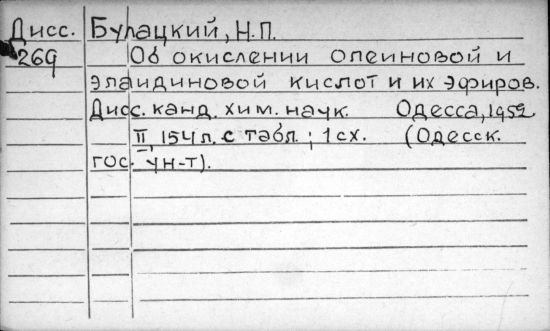 Дисс. Булацкий, Н.П.
269 Об окислении олеиновой и
элаидиновой кислот и их эфиров.
Дисс. канд. хим. наук. Одесса, 1952
II, 154 л. с табл.; 1 сх. (Одесск.
гос. ун-т).